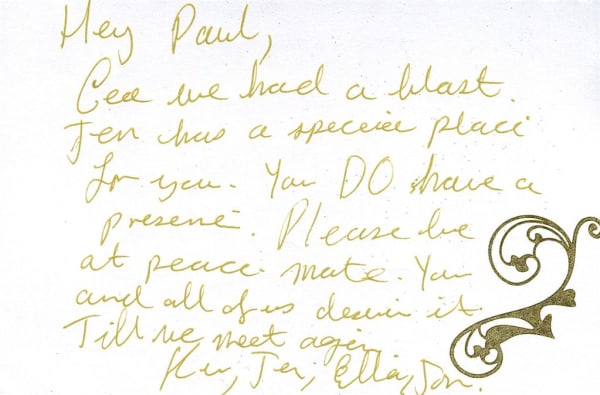 Hey Paul,
we had a blast.
Jen has a special place
for you. You DO have a
presence. Please be
at peace mate. You
and all of us deserve it.
Till we meet again
Jen, Ella,